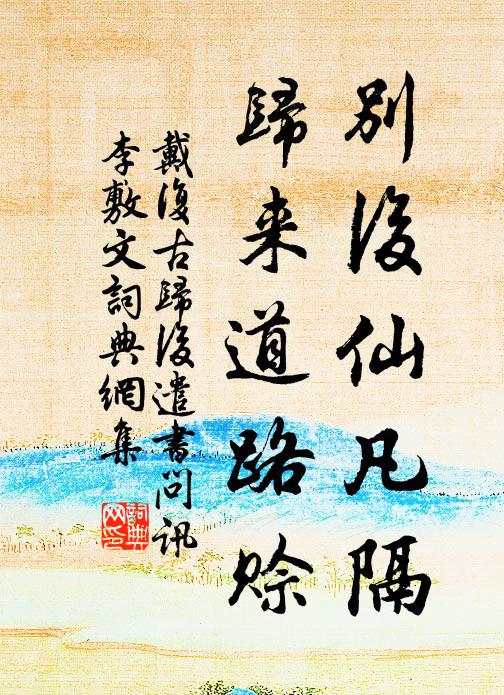 別後仙凡隔
歸来道路賒
戴復古歸後遣書問訊
李敷文詞典網集
詞典
网印